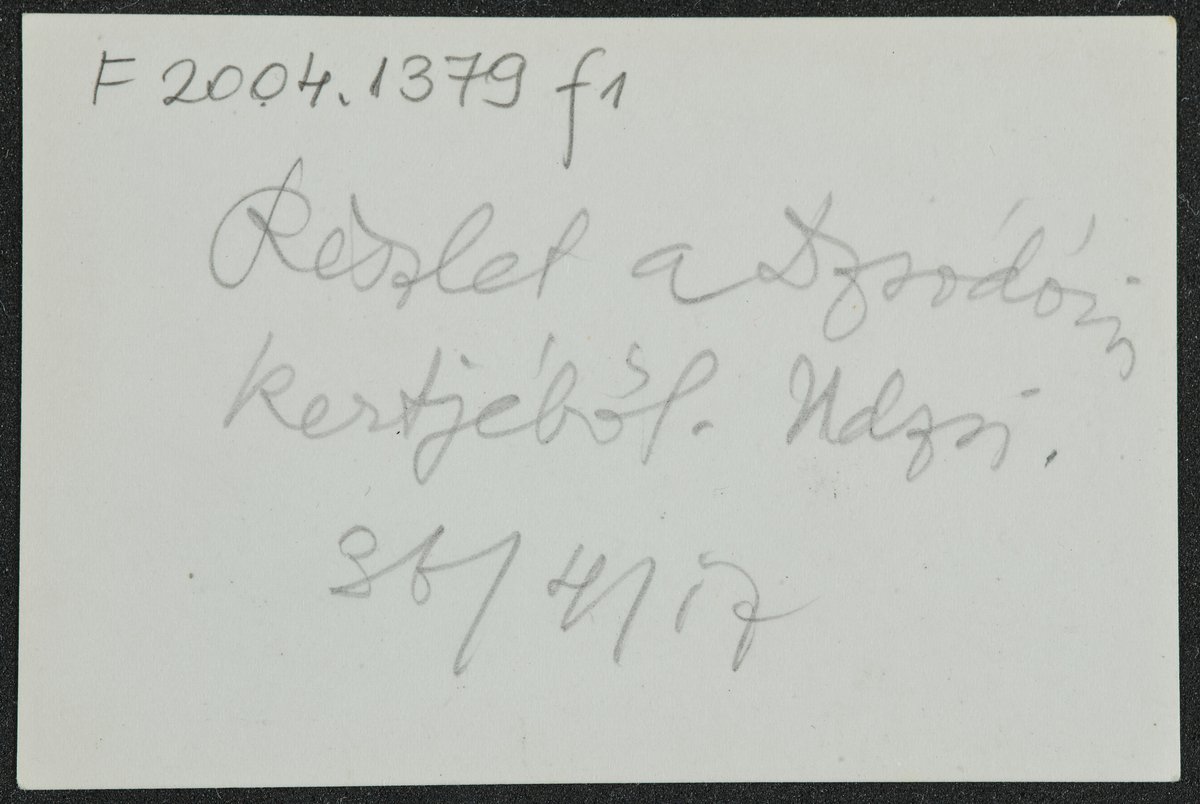 F 2004.1379 f1
Részlet a Dzsódóin
kertjéből. Udzsi.
36/4/17